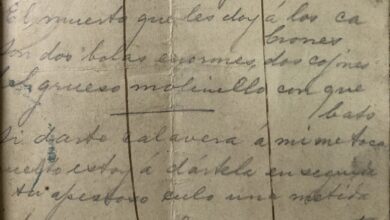 El muerto que les doy á los ca
brones
son dos bolas enormes, dos cojones
del grueso molinillo con que
bato
Si darte calavera á mi me toca
puesto estoy á dártela en seguida
tu apestoso culo una metida